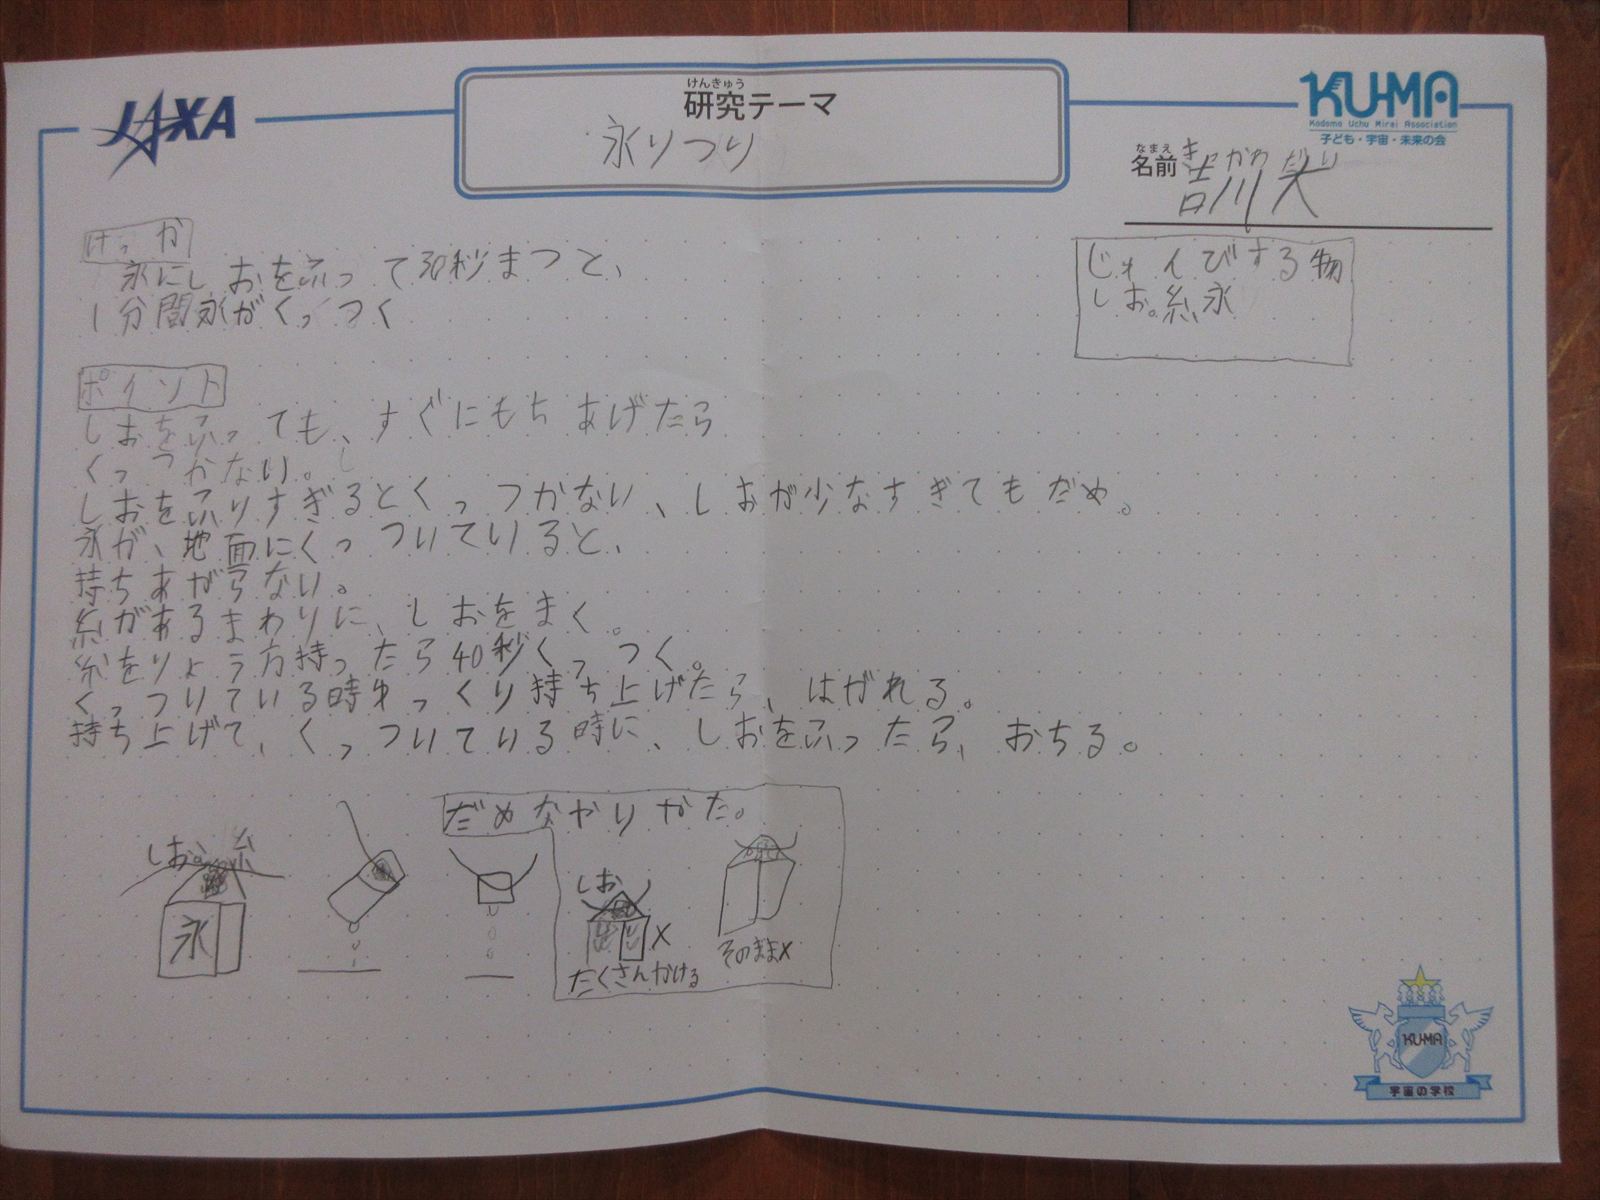 JAXA
けんきゅう
研究テーマ
氷りつり
KU-MA
Kodomo Uchu Mirai Association
子ども・宇宙・未来の会
なまえ
名前
きっかわ
吉川
けっか
氷にしおをふって30秒まつと、
1分間氷がくっつく
じゅんびする物
しお。糸氷
ポイント
しおをふっても、すぐにもちあげたら
くっつかない。
しおをふりすぎるとくっつかない、しおが少なすぎてもだめ。
氷が、地面にくっついていると、
持ちあがらない。
糸があるまわりに、しおをまく。
糸をりょう方持ったら40秒くっつく。
くっつりている時ゆっくり持ち上げたら、はがれる。
持ち上げて、くっついている時に、しおをふったら、おちる。
しお。糸
氷
だめなやりかた。
しお
×
たくさんかける
そのまま×
KU-MA
宇宙の学校